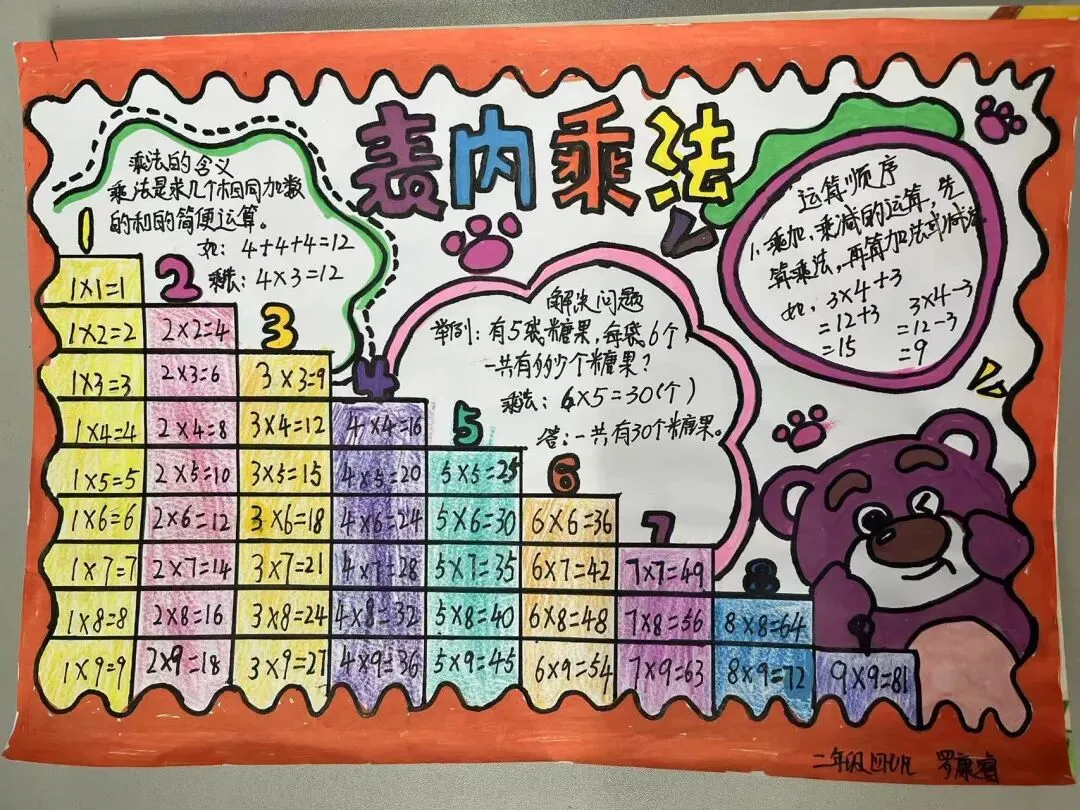 表内乘法
乘法的含义
乘法是求几个相同加数
的和的简便运算。
如：4+4+4=12
乘法：4×3=12
运算顺序
1.乘加、乘减的运算，先
算乘法，再算加法或减法。
如：3×4+3 3×4-3
=12+3 =12-3
=15 =9
解决问题
举例：有5袋糖果，每袋6个，
一共有多少个糖果？
乘法：6×5=30(个)
答：一共有30个糖果。
1
1×1=1 2
1×2=2 2×2=4 3
1×3=3 2×3=6 3×3=9 4
1×4=4 2×4=8 3×4=12 4×4=16 5
1×5=5 2×5=10 3×5=15 4×5=20 5×5=25 6
1×6=6 2×6=12 3×6=18 4×6=24 5×6=30 6×6=36 7
1×7=7 2×7=14 3×7=21 4×7=28 5×7=35 6×7=42 7×7=49 8
1×8=8 2×8=16 3×8=24 4×8=32 5×8=40 6×8=48 7×8=56 8×8=64 9
1×9=9 2×9=18 3×9=27 4×9=36 5×9=45 6×9=54 7×9=63 8×9=72 9×9=81
二年级四班 罗康睿